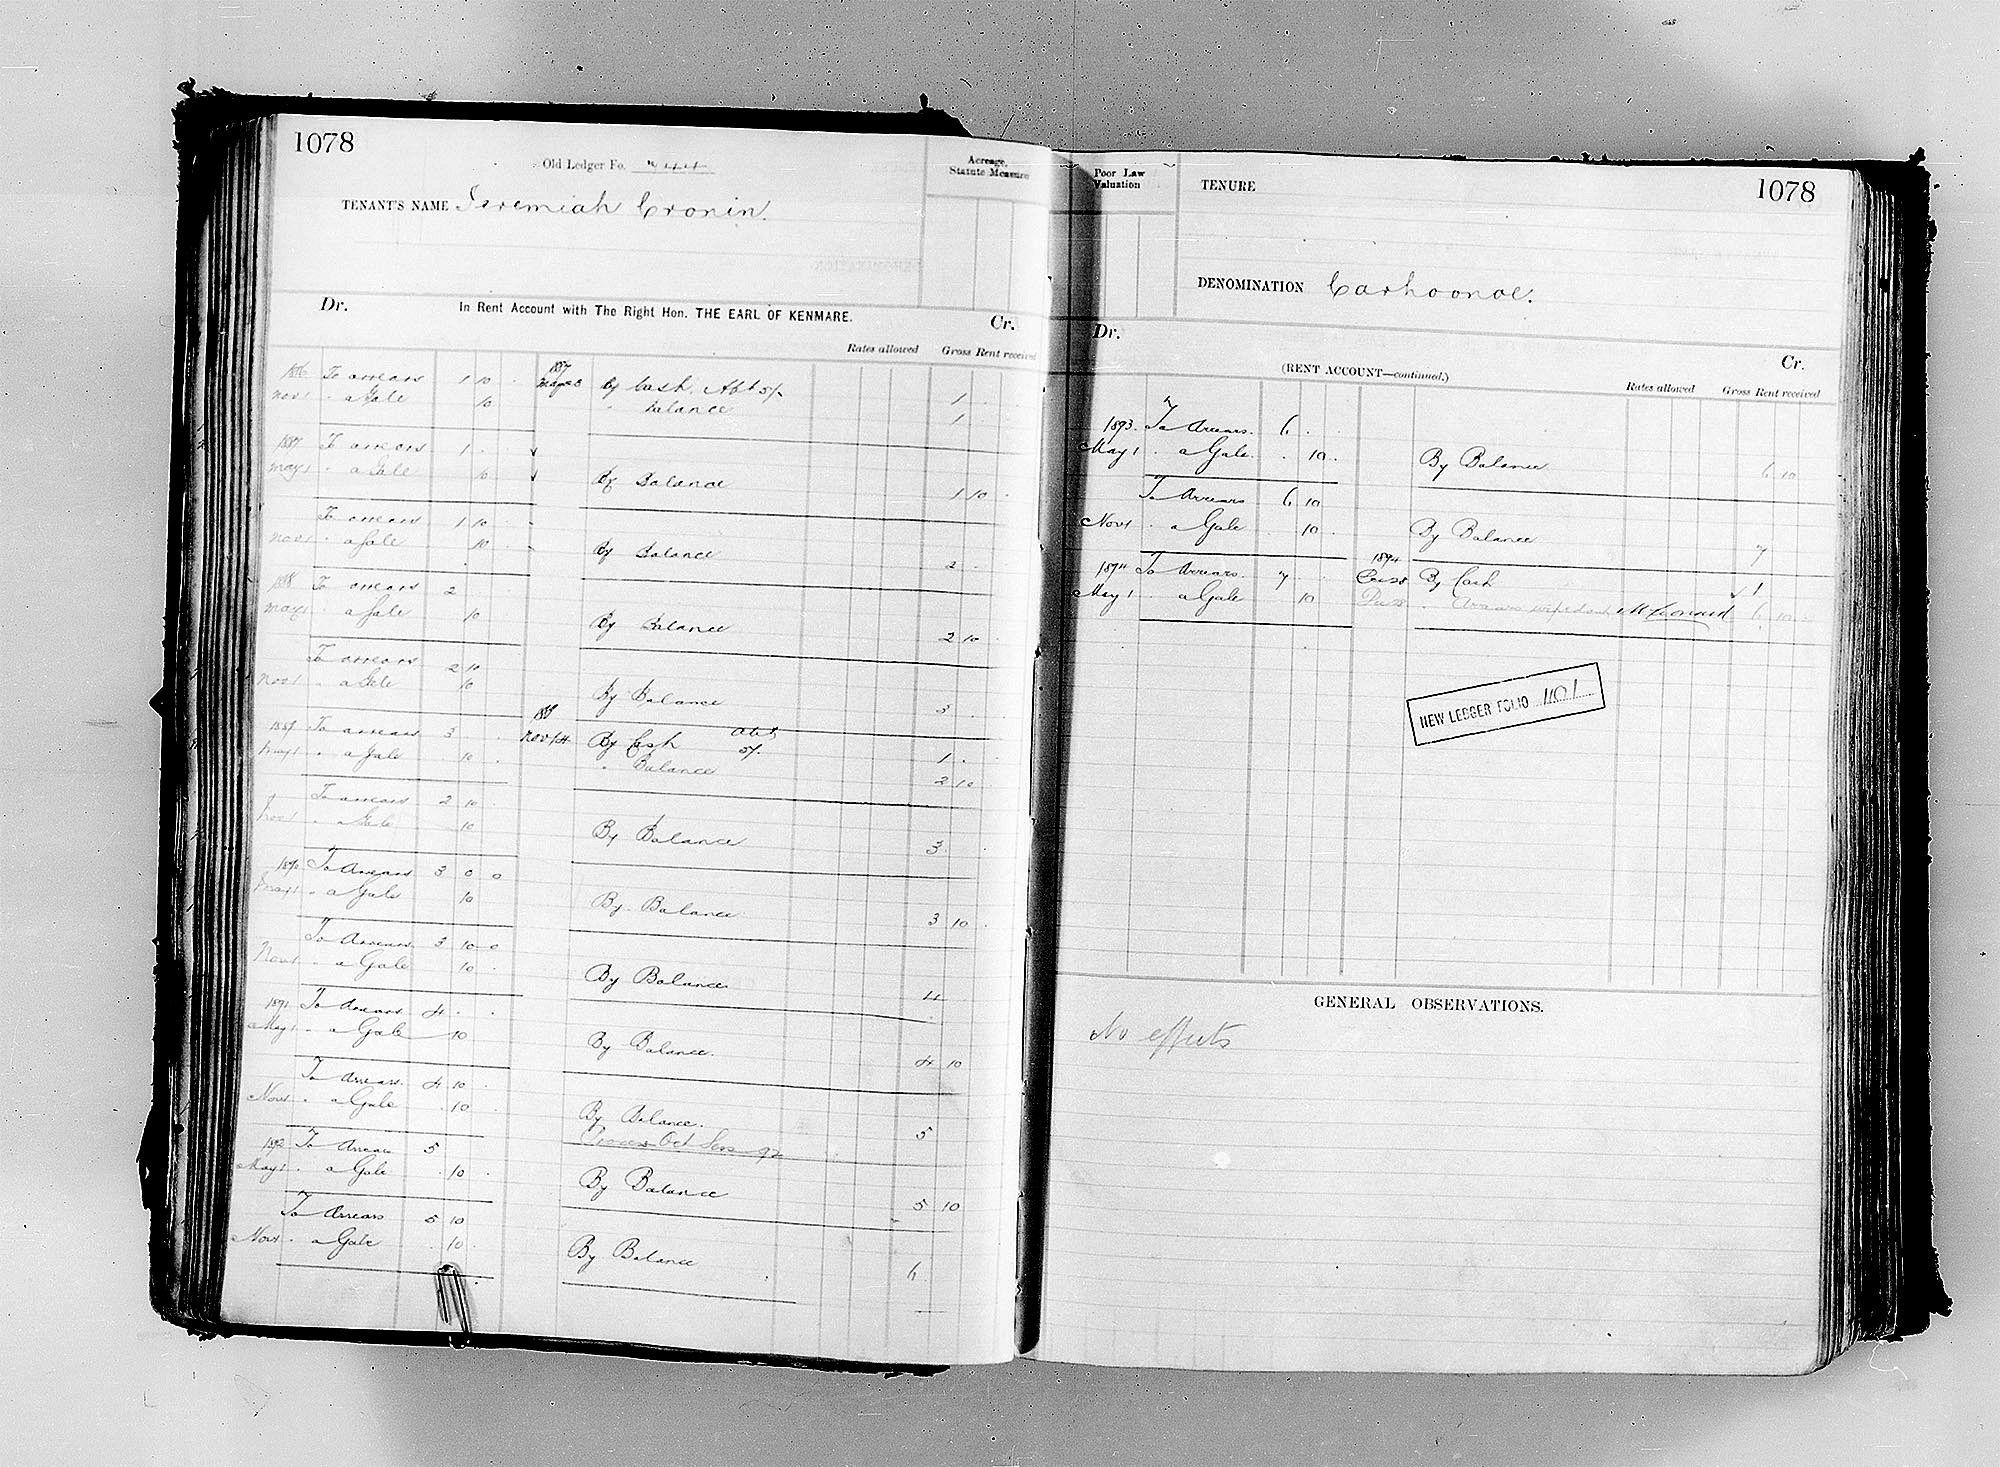 1078
Old Ledger Fo. 944
Acreage, Statute Measure
TENANT'S NAME Jeremiah Cronin.
Dr. In Rent Account with The Right Hon. THE EARL OF KENMARE. Cr.
Rates allowed Gross Rent received
1886 To arrears 1 10 . 1887 By Cash Abt 5/. 1 . .
Nov 1 " a Gale 10 " Balance 1 . .
1887 To arrears 1 .
May 1 " a Gale 10 By Balance 1 10 .
To arrears 1 10
Nov 1 " a Gale 10 . By Balance 2 . .
1888 To arrears 2
May 1 " a Gale 10 By Balance 2 10 .
To arrears 2 10
Nov 1 " a Gale 10 By Balance 3 . .
1889 To arrears 3 . . Nov 14 By Cash Abt 5/. 1 . .
May 1 " a Gale . 10 . " Balance 2 10 .
To arrears 2 10 .
Nov 1 " a Gale 10 By Balance 3 . .
1890 To Arrears 3 0 0
May 1 " a Gale 10 By Balance 3 10 .
To Arrears 3 10 0
Nov 1 " a Gale 10 . By Balance 4
1891 To Arrears 4 . .
May 1 " a Gale 10 By Balance. 4 10
To Arrears. 4 10 .
Nov 1 " a Gale . 10 . By Balance. 5
Process Oct Sess 92
1892 To Arrears 5
May 1 " a Gale . 10 . By Balance 5 10
To Arrears 5 10
Nov 1 " a Gale . 10 . By Balance 6
Poor Law Valuation
TENURE
1078
DENOMINATION Carhoonoe.
Dr. (RENT ACCOUNT—continued.) Cr.
Rates allowed Gross Rent received
1893. To Arrears. 6 .
May 1 " a Gale. . 10 . By Balance 6 10
To Arrears 6 10
Nov 1 " a Gale . 10 . By Balance 7
1894 To Arrears. 7 . . 1894 Dec 28 By Cash 1
May 1 " a Gale . 10 Dec 28 " Arrears wiped out M Leonard 6 10
NEW LEDGER FOLIO 1101
GENERAL OBSERVATIONS.
No effects